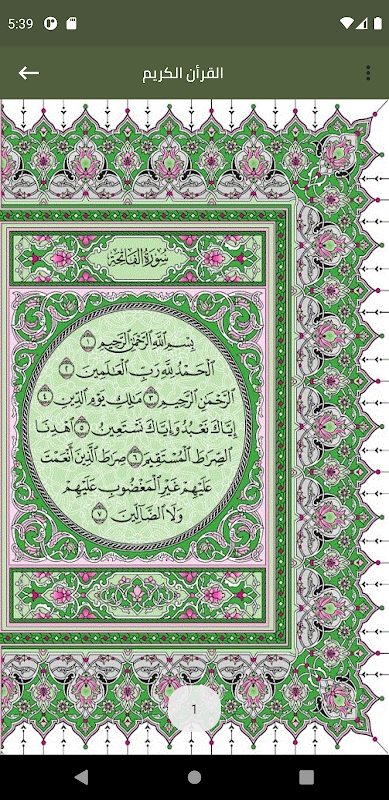 5:39
القرأن الكريم
سُورَةُ الفَاتِحَةِ
بِسْمِ ٱللَّهِ ٱلرَّحْمَٰنِ ٱلرَّحِيمِ ١
ٱلْحَمْدُ لِلَّهِ رَبِّ ٱلْعَٰلَمِينَ ٢
ٱلرَّحْمَٰنِ ٱلرَّحِيمِ ٣ مَٰلِكِ يَوْمِ ٱلدِّينِ ٤
إِيَّاكَ نَعْبُدُ وَإِيَّاكَ نَسْتَعِينُ ٥ ٱهْدِنَا
ٱلصِّرَٰطَ ٱلْمُسْتَقِيمَ ٦ صِرَٰطَ ٱلَّذِينَ أَنْعَمْتَ
عَلَيْهِمْ غَيْرِ ٱلْمَغْضُوبِ عَلَيْهِمْ
وَلَا ٱلضَّآلِّينَ ٧
1